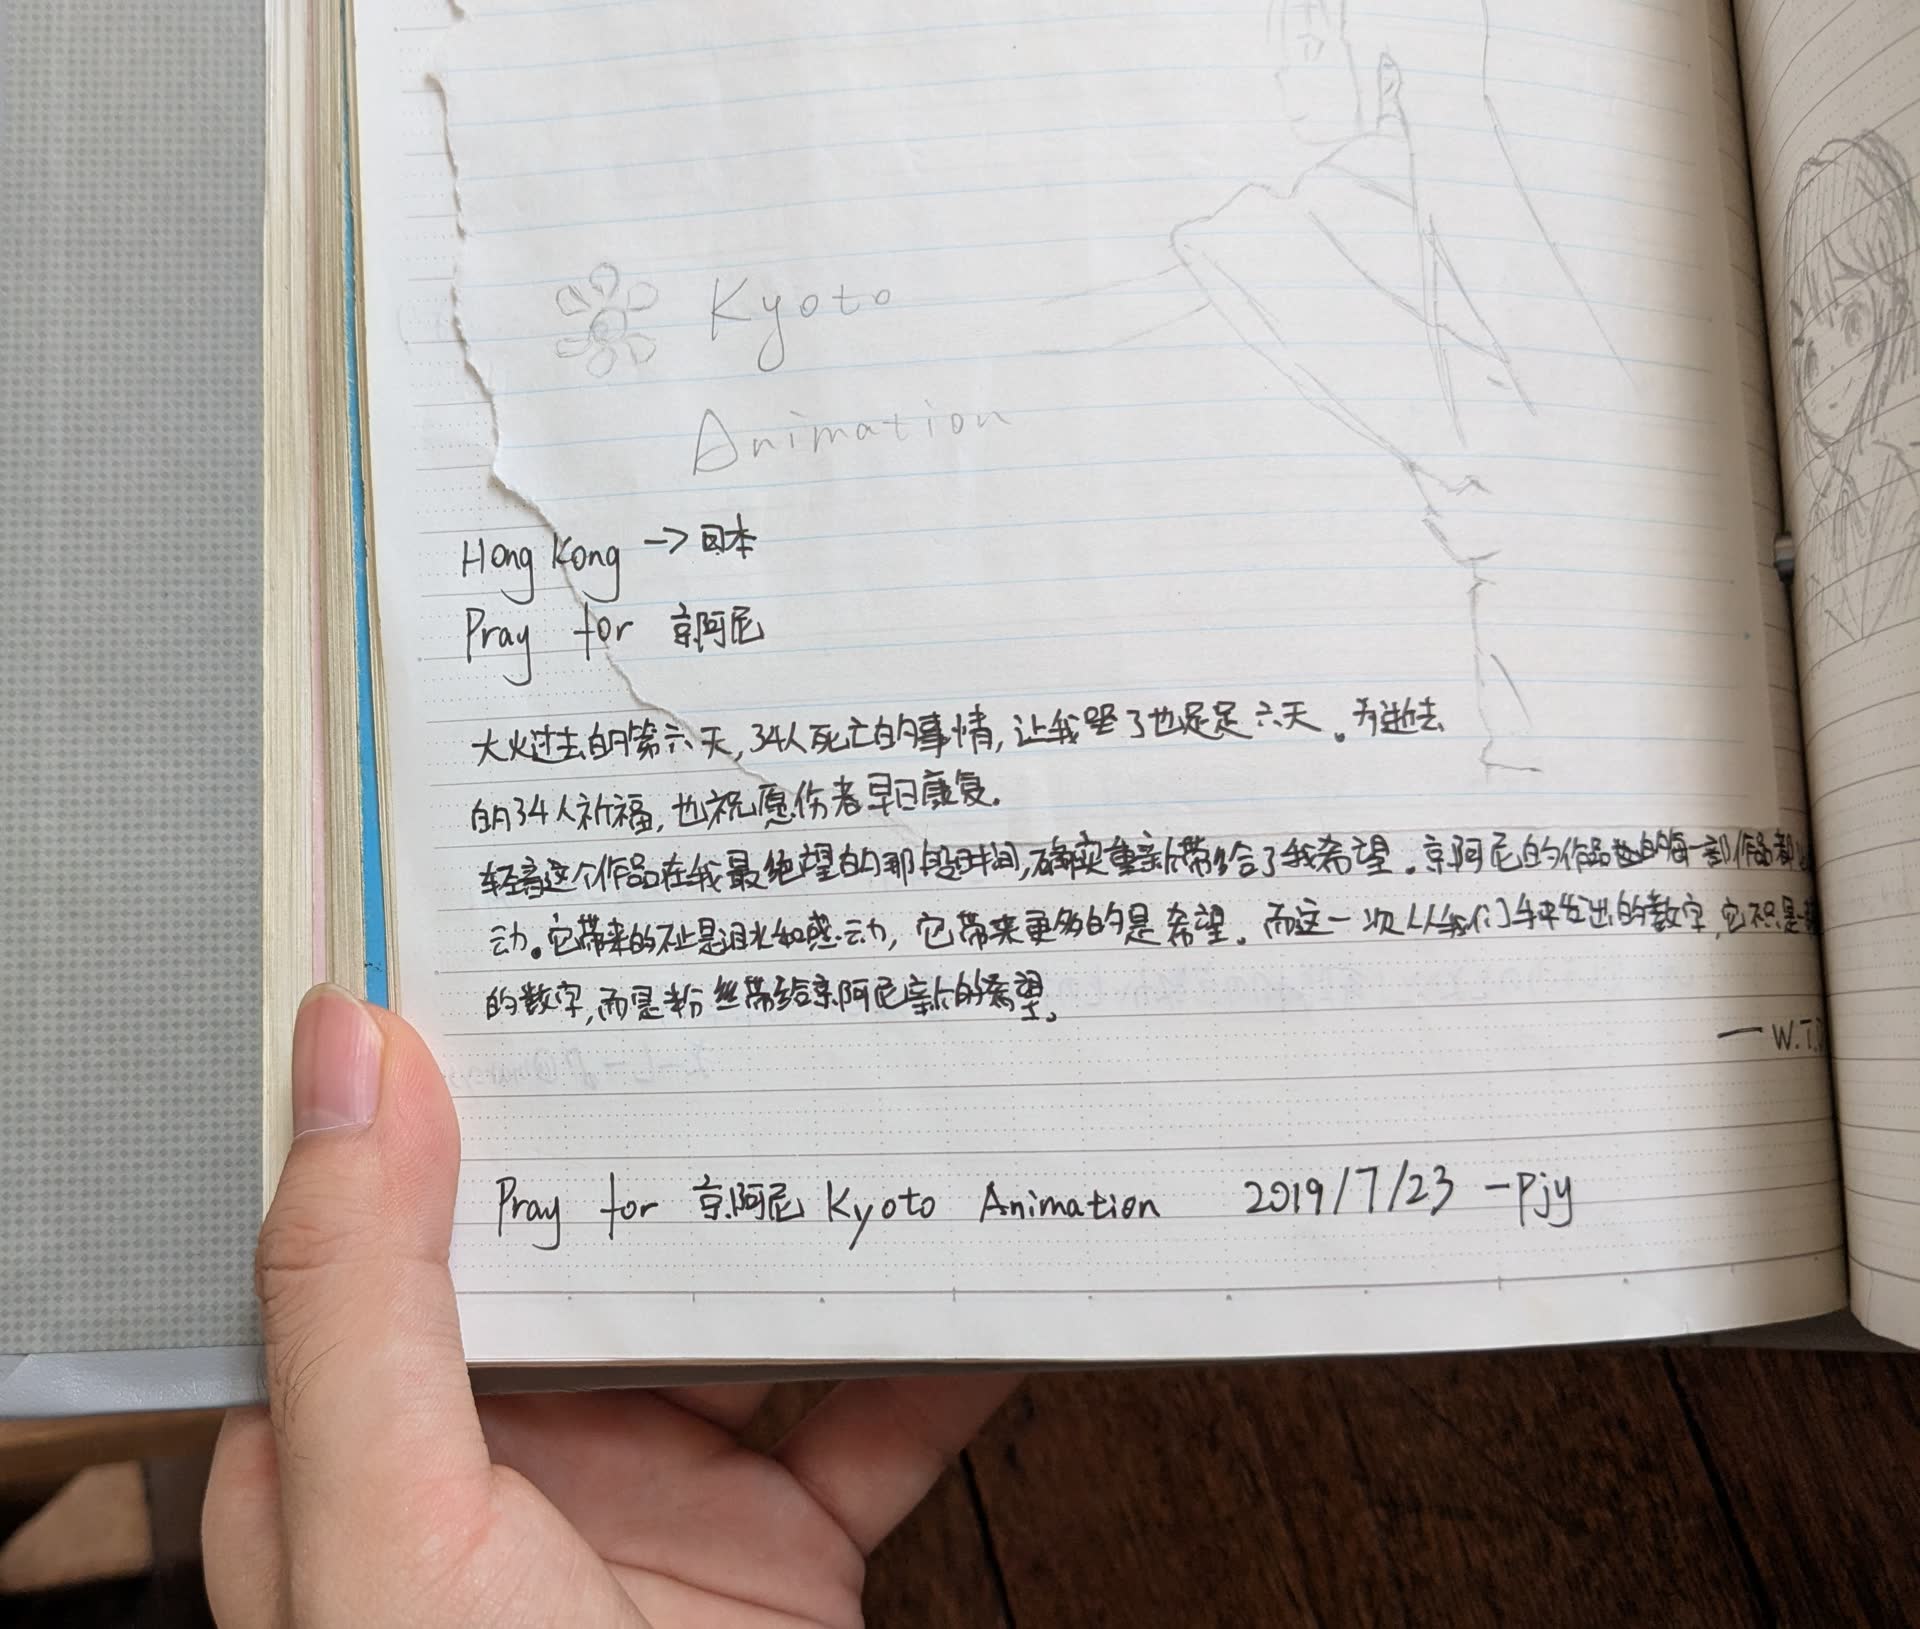 Kyoto
Animation
Hong Kong -> 日本
Pray for 京阿尼
大火过去的第六天,34人死亡的事情,让我哭了也足足六天。为逝去
的34人祈福,也祝愿伤者早日康复。
轻音这个作品在我最绝望的那段时间,确实重新带给了我希望。京阿尼的作品的每一部作品都
动。它带来的不止是泪水和感动,它带来更多的是希望。而这一次从我们手中发出的数字,它不只是
的数字,而是粉丝带给京阿尼新的希望。
— W.T.
Pray for 京阿尼 Kyoto Animation 2019/7/23 -Pjy